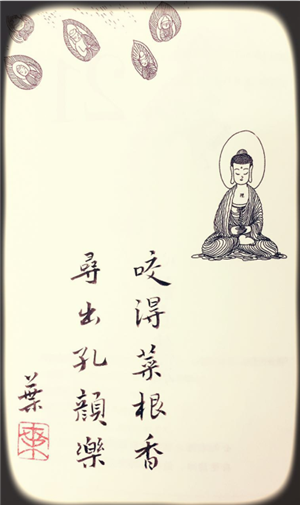 咬得菜根香
尋出孔顔樂
葉